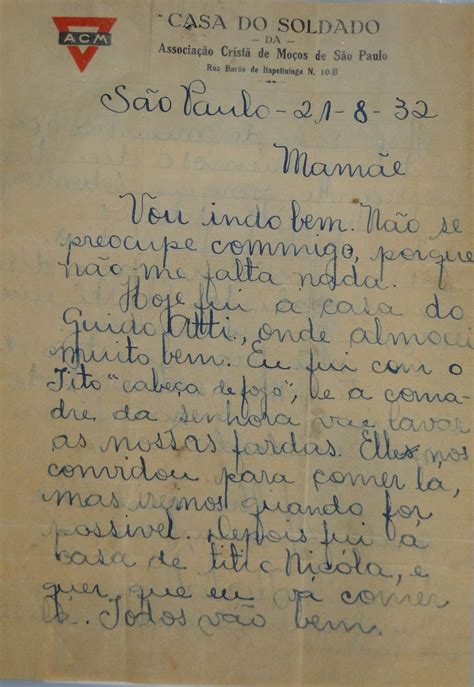 ACM
CASA DO SOLDADO
— DA —
Associação Cristã de Moços de São Paulo
Rua Barão de Itapetininga N. 10-B
São Paulo - 21-8-32
Mamãe
Vou indo bem. Não se
preocupe commigo, porque
não me falta nada.
Hoje fui a casa do
Guido Atti, onde almocei
muito bem. Eu fui com o
Tito "cabeça de fogo", e a coma-
dre da senhora vae lavar
as nossas fardas. Elles nos
convidou para comer lá,
mas iremos quando for
possivel. Depois fui á
casa de titio Nicóla, e
quer que eu vá comer
lá. Todos vão bem.